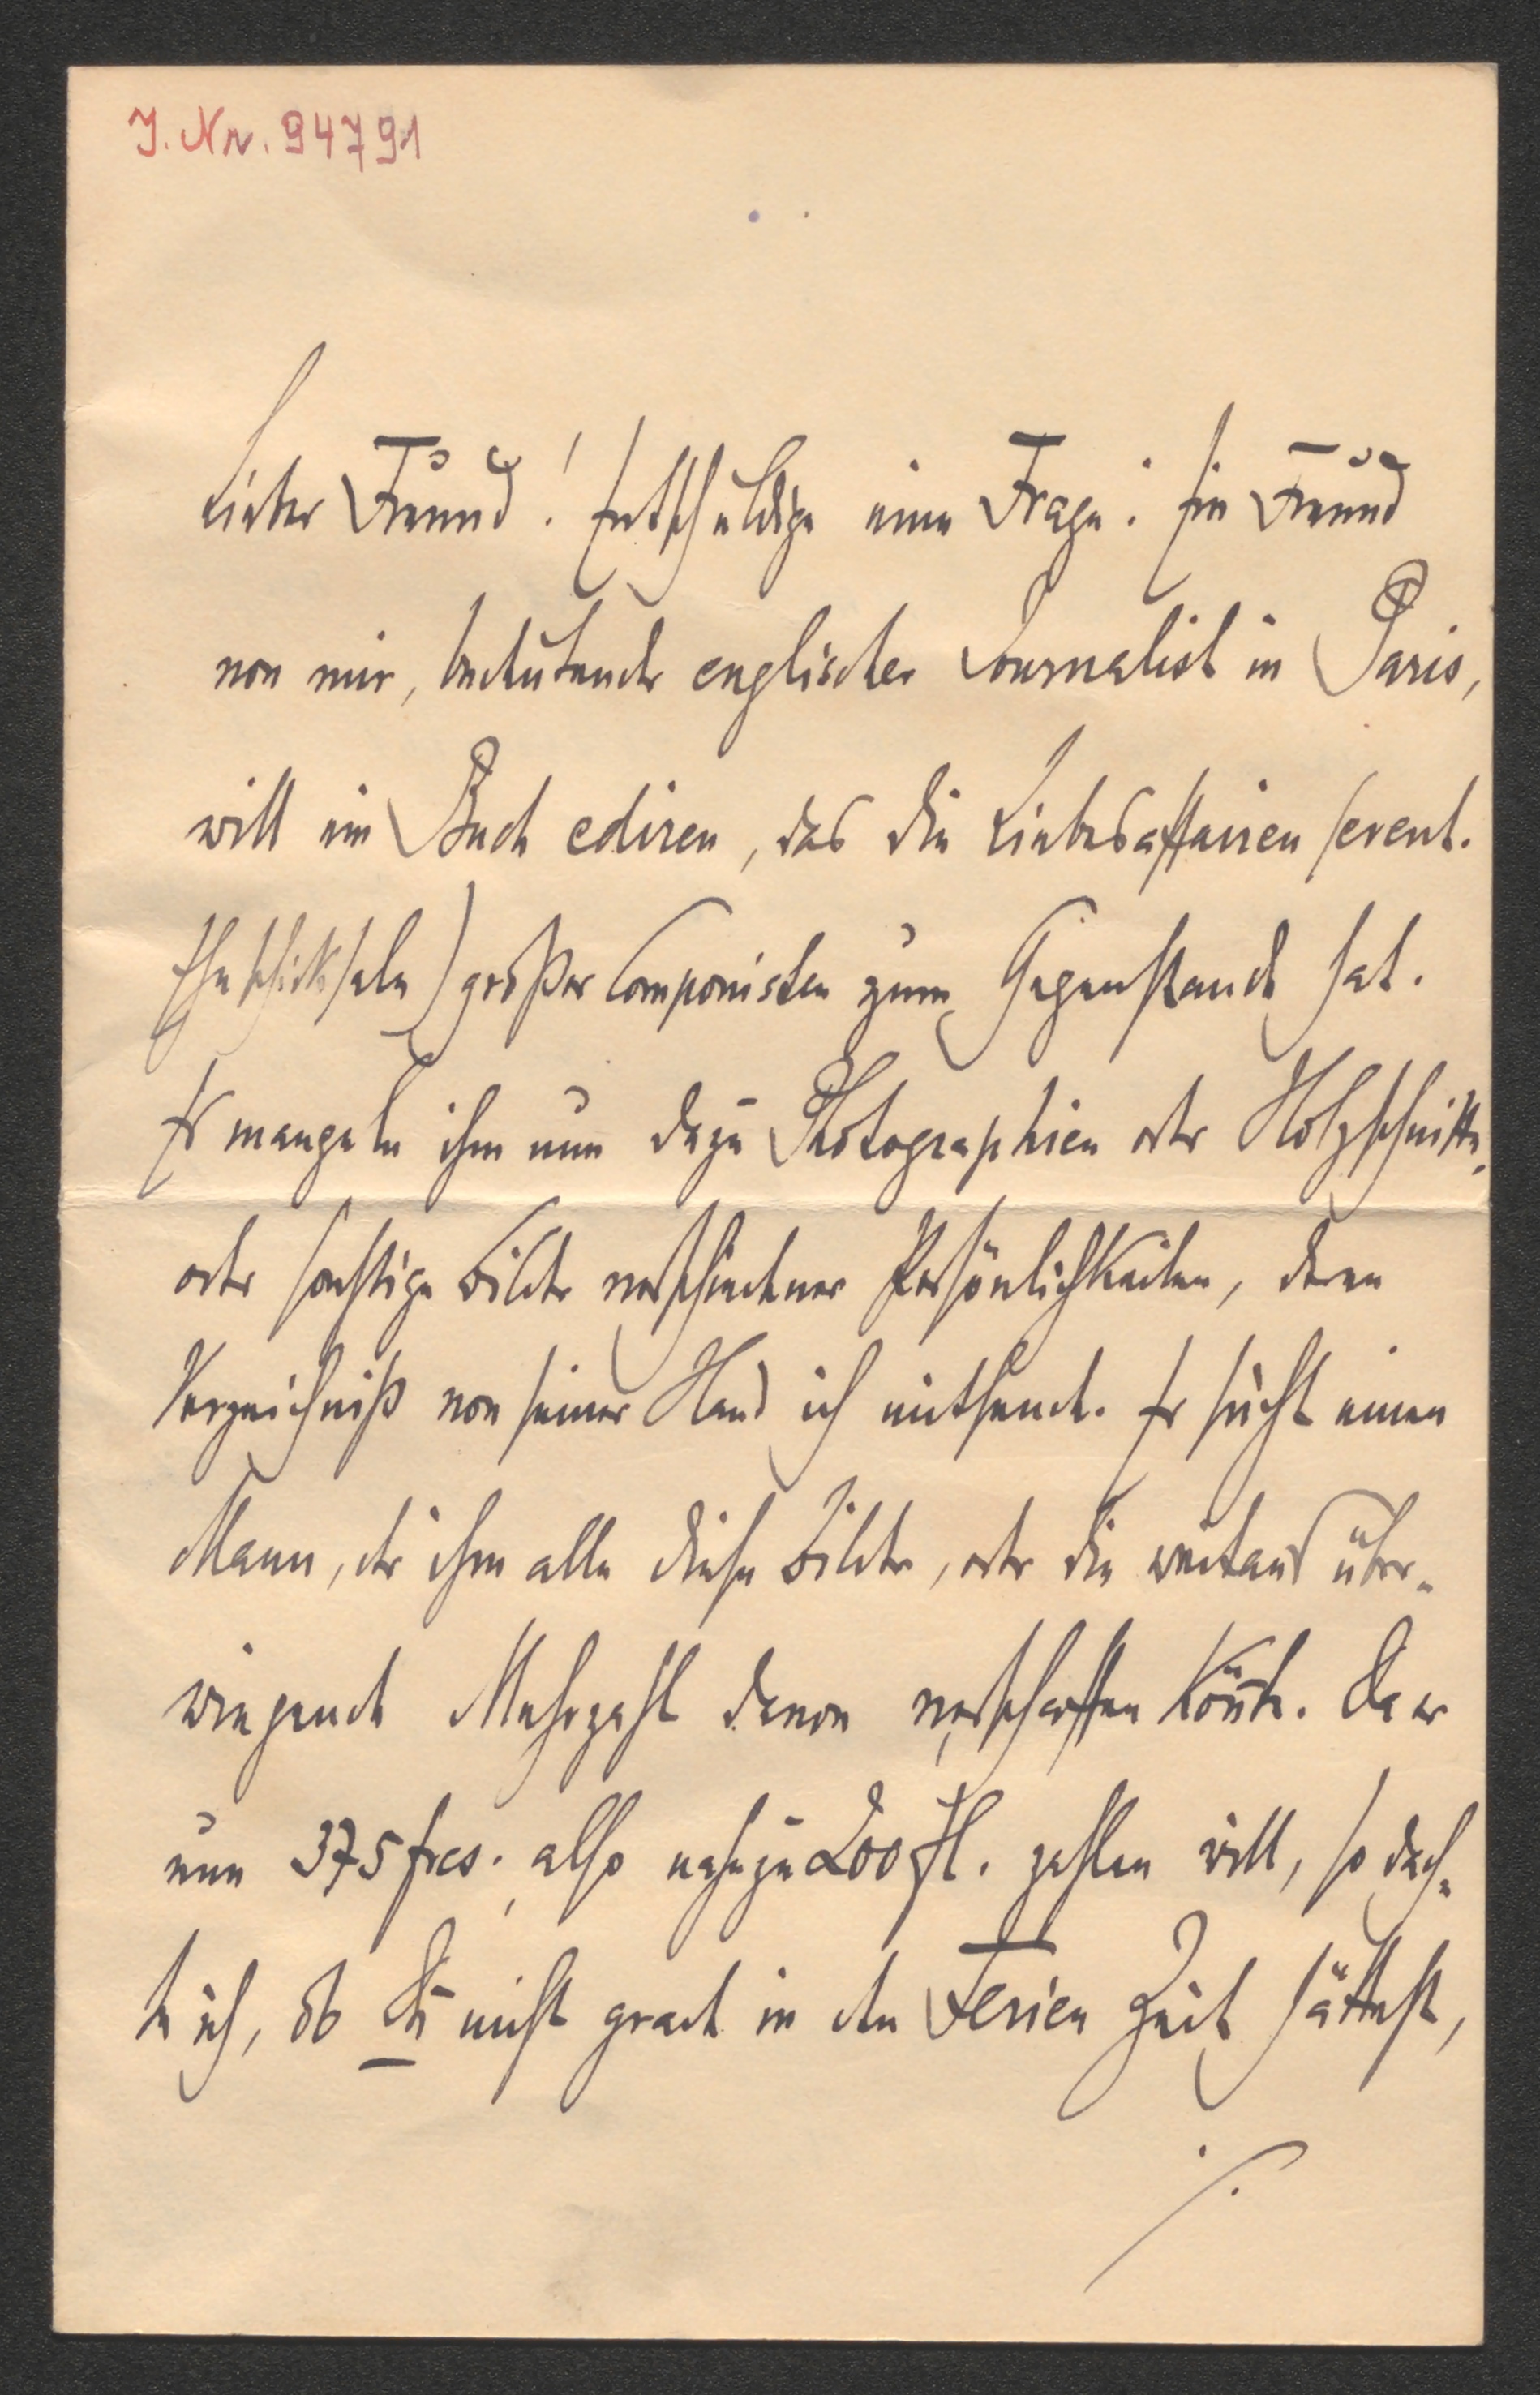 J. Nr. 94791
Lieber Freund! Entschuldige eine Frage: Ein Freund
von mir, bedeutender englischer Journalist in Paris,
will ein Buch ediren, das die Liebesaffairen (event.
Eheschicksale) großer Componisten zum Gegenstande hat.
Es mangeln ihm nun dazu Photographien oder Holzschnitte,
oder sonstige Bilder verschiedener Persönlichkeiten, deren
Verzeichniß von seiner Hand ich mitsende. Er sucht einen
Mann, der ihm alle diese Bilder, oder die weitaus über-
wiegende Mehrzahl davon verschaffen könnte. Da er
nun 375 frcs., also nahezu 200 fl. zahlen will, so dach-
te ich, ob Du nicht grade in den Ferien Zeit hättest,
./.